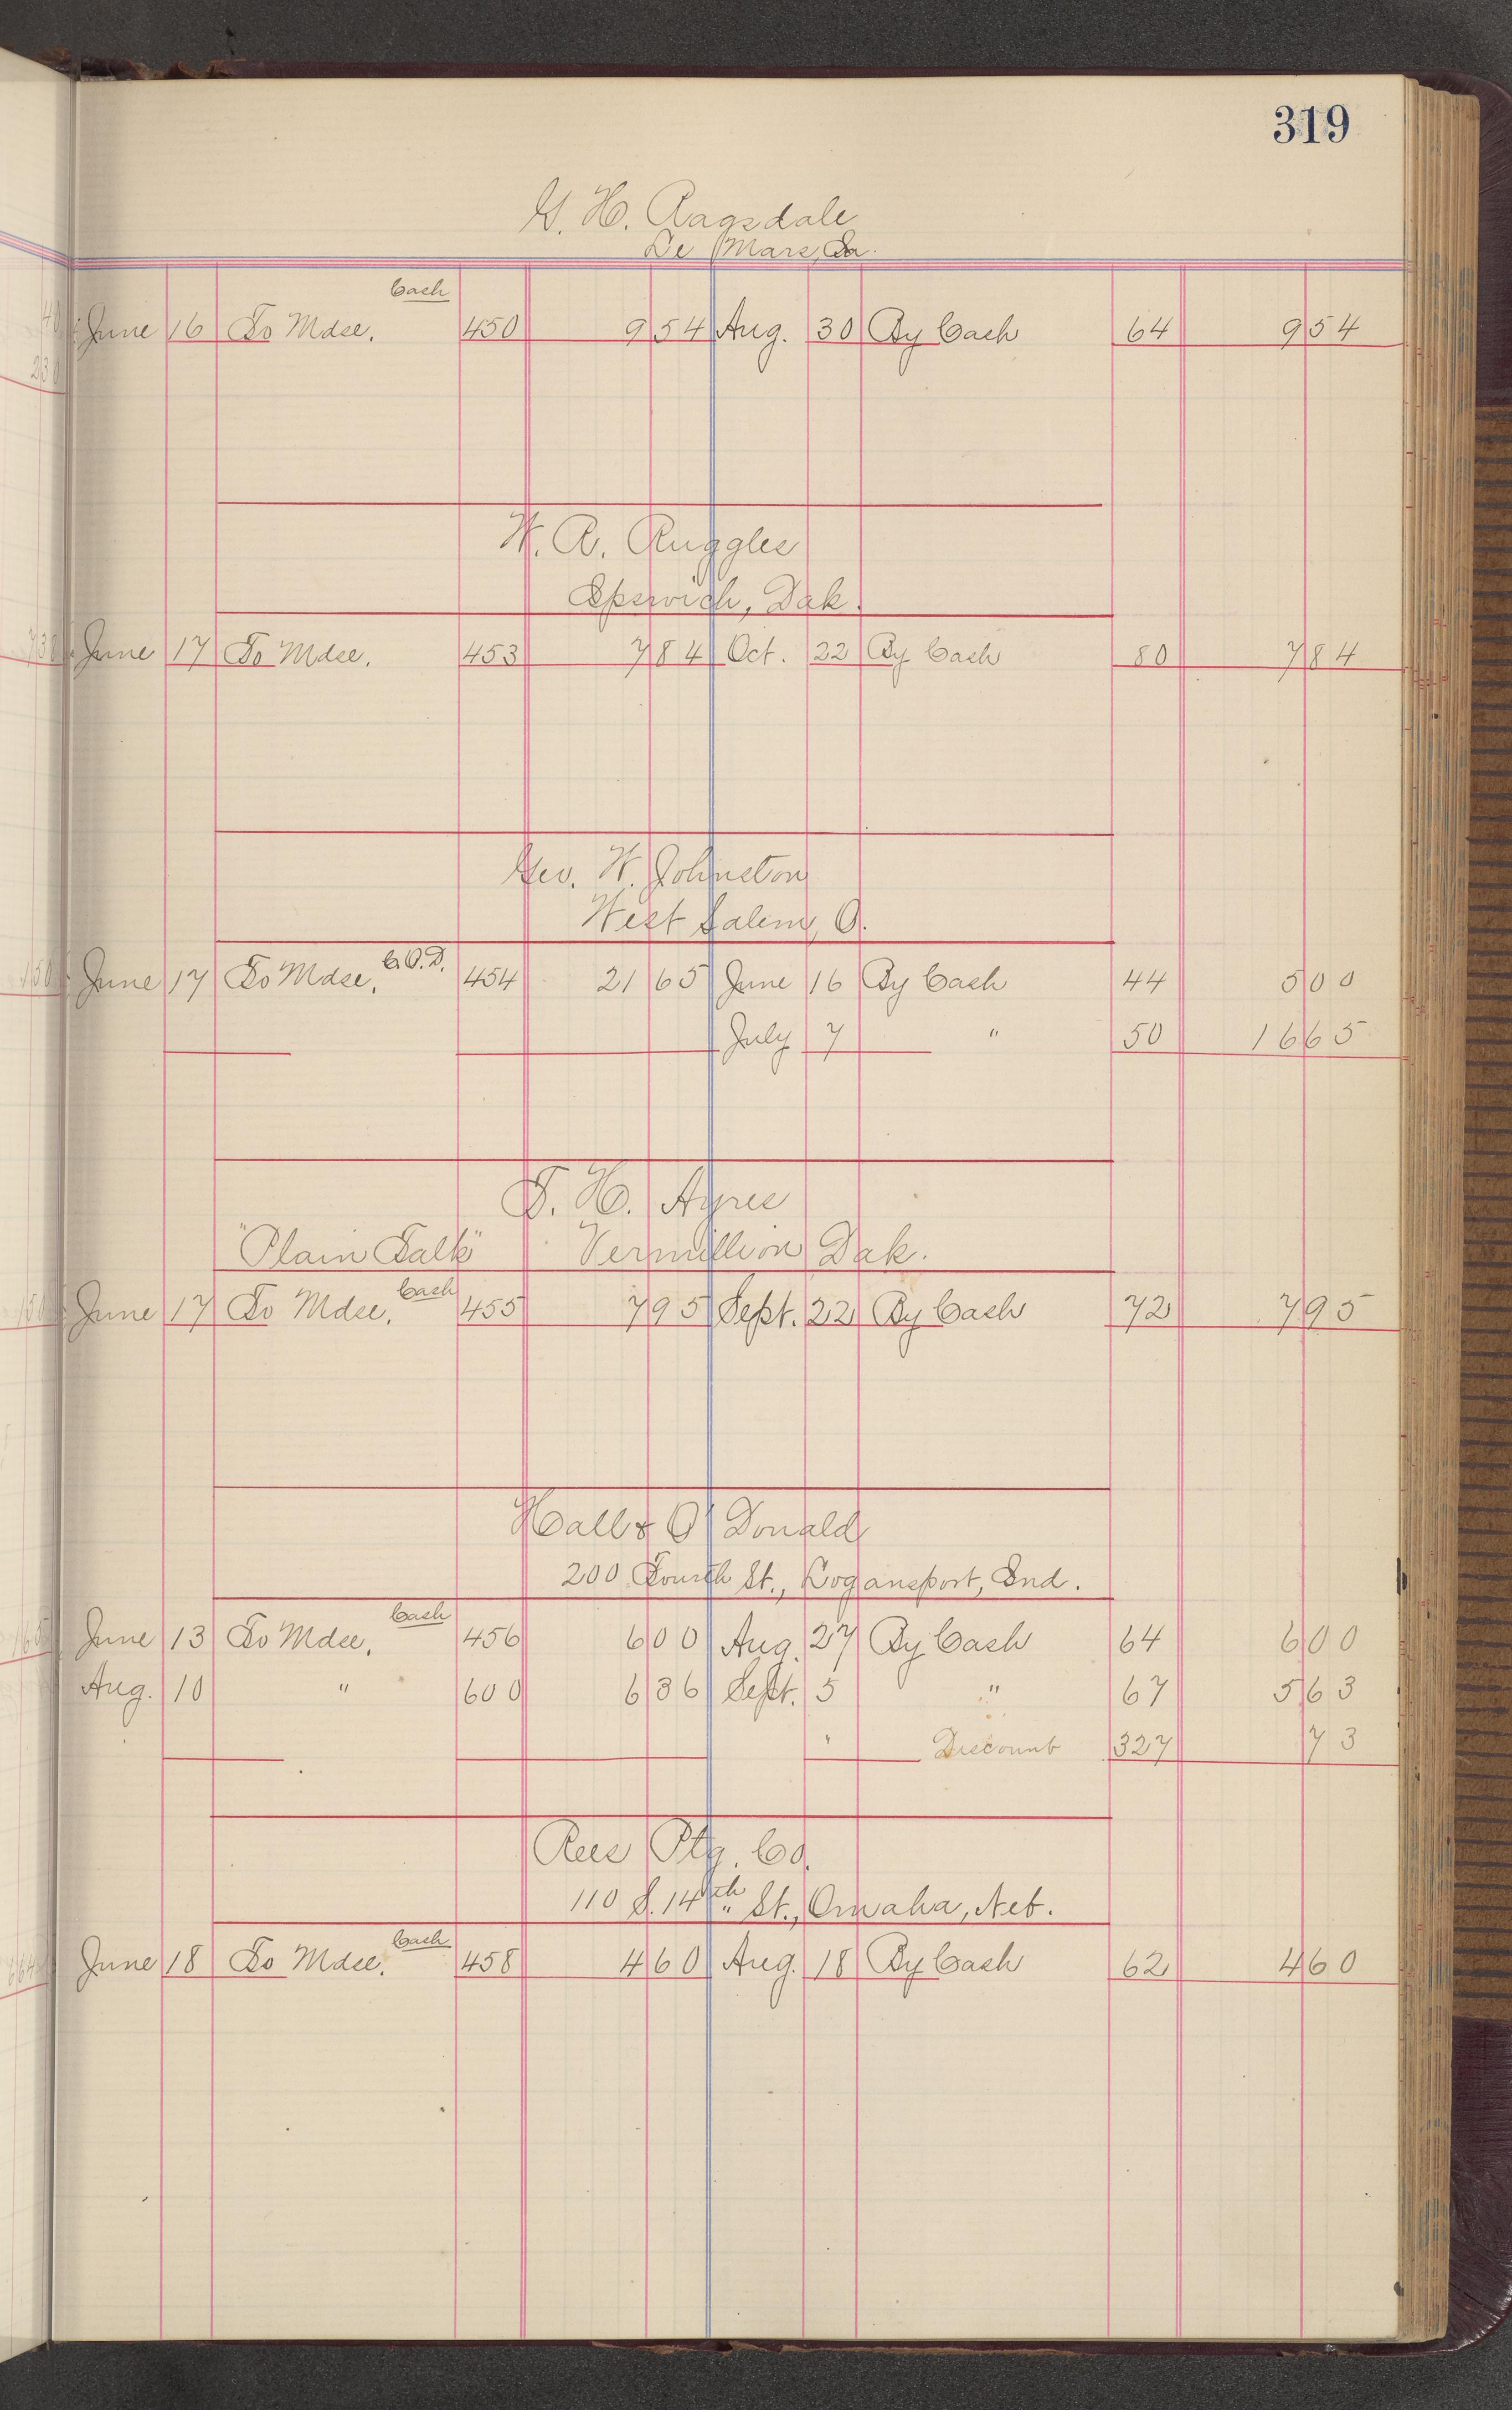 319
G. H. Ragsdale
Le Mars, Ia.
Cash
June 16 To Mdse. 450 9 54 Aug. 30 By Cash 64 9 54
W. R. Ruggles
Ipswich, Dak.
June 17 To Mdse. 453 7 84 Oct. 22 By Cash 80 7 84
Geo. W. Johnston
West Salem, O.
June 17 To Mdse. C.O.D. 454 21 65 June 16 By Cash 44 5 00
July 7 " 50 16 65
T. H. Ayres
"Plain Talk" Vermillion Dak.
June 17 To Mdse. Cash 455 7 95 Sept. 22 By Cash 72 7 95
Hall & O'Donald
200 Fourth St., Logansport, Ind.
June 13 To Mdse. Cash 456 6 00 Aug. 27 By Cash 64 6 00
Aug. 10 " 600 6 36 Sept. 5 " 67 5 63
" Discount 327 73
Rees Ptg. Co.
110 S. 14th St., Omaha, Neb.
June 18 To Mdse. Cash 458 4 60 Aug. 18 By Cash 62 4 60